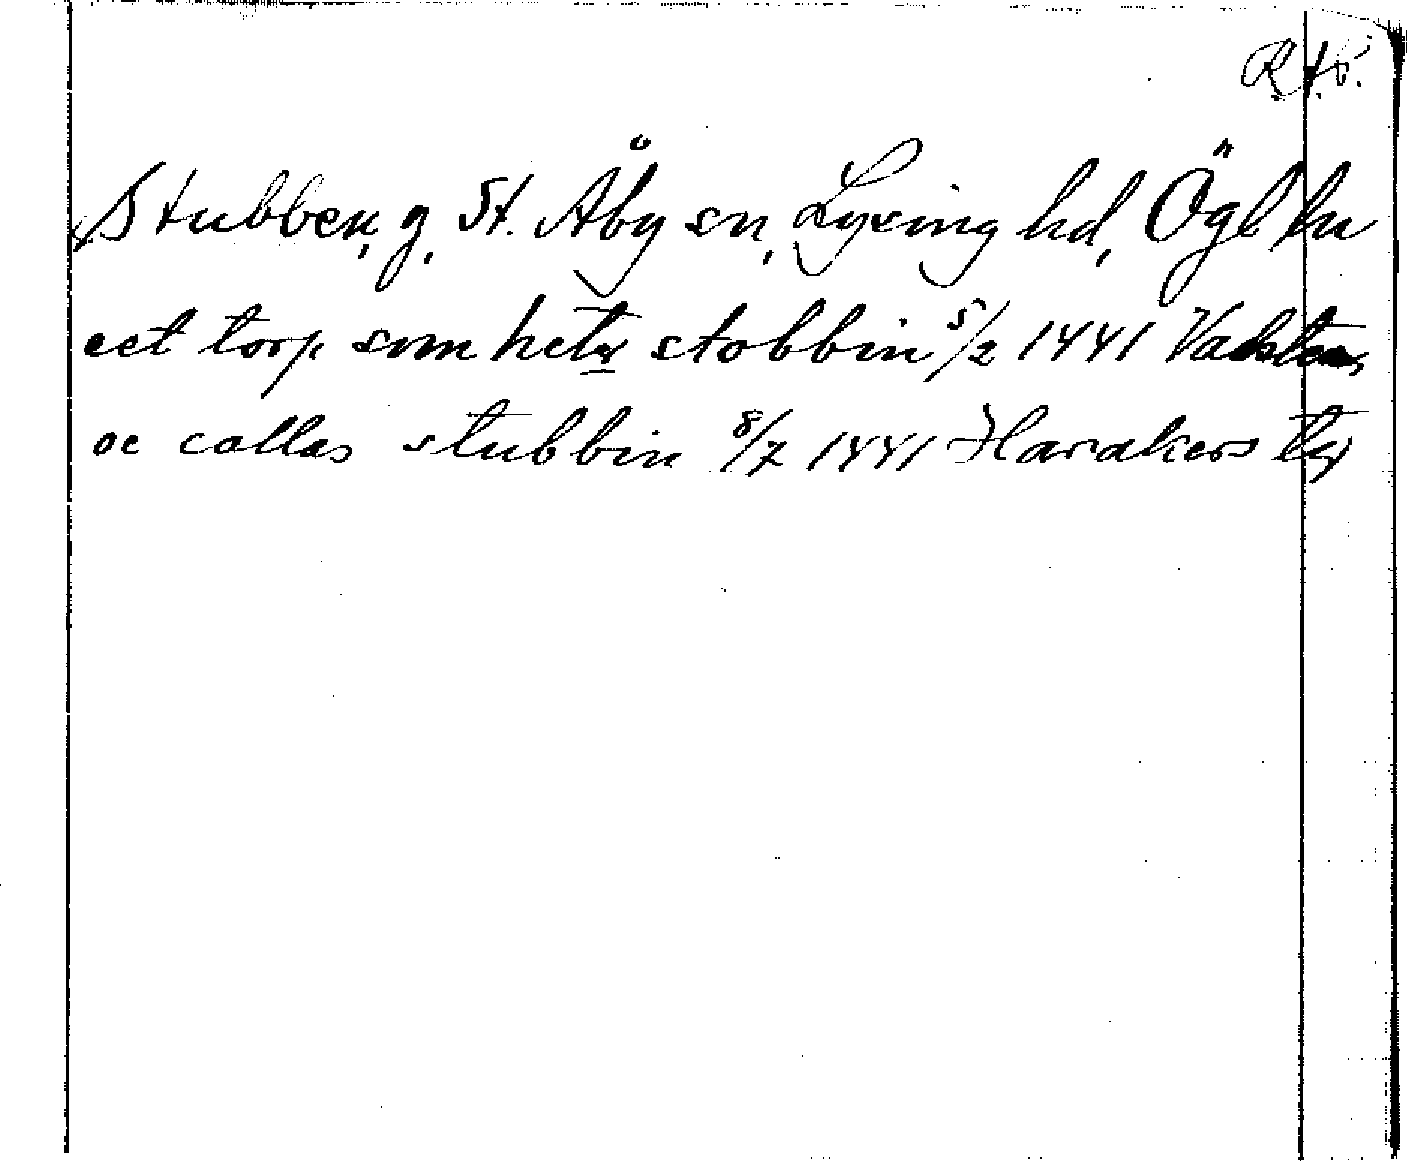 R.A.ö.
Stubben, g, St. Åby sn, Lysing hd, Ögl ln
eet torp som heter stobbin 5/2 1441 Vadstena
oc callas stubbin 8/7 1441 Harakers tg